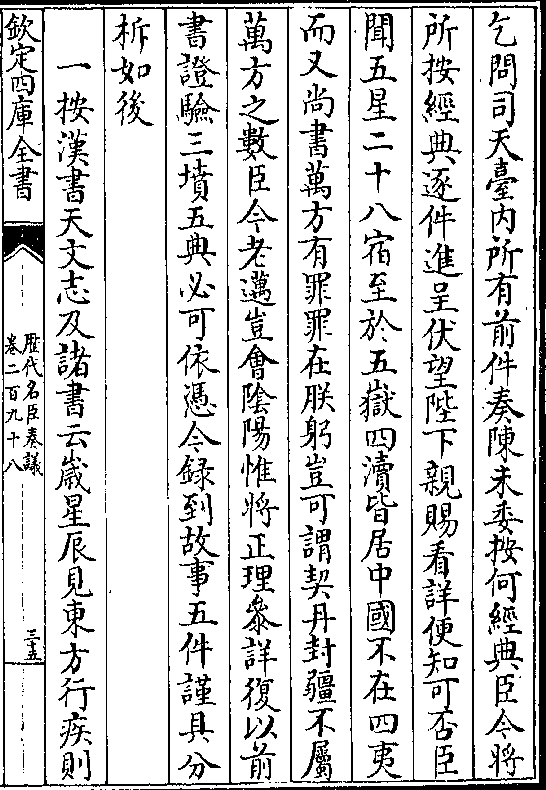 乞問司天臺内所有前件奏陳未委按何經典臣令將
所按經典逐件進呈伏望陛下親賜看詳便知可否臣
聞五星二十八宿至於五嶽四瀆皆居中國不在四夷
而又尚書萬方有罪罪在朕躬豈可謂契丹封疆不屬
萬方之數臣今老邁豈會隂陽惟將正理叅詳復以前
書證驗三墳五典必可依憑今録到故事五件謹具分
析如後
一按漢書天文志及諸書云嵗星辰見東方行疾則
欽定四庫全書
歴代名臣奏議
卷二百九十八
三十五